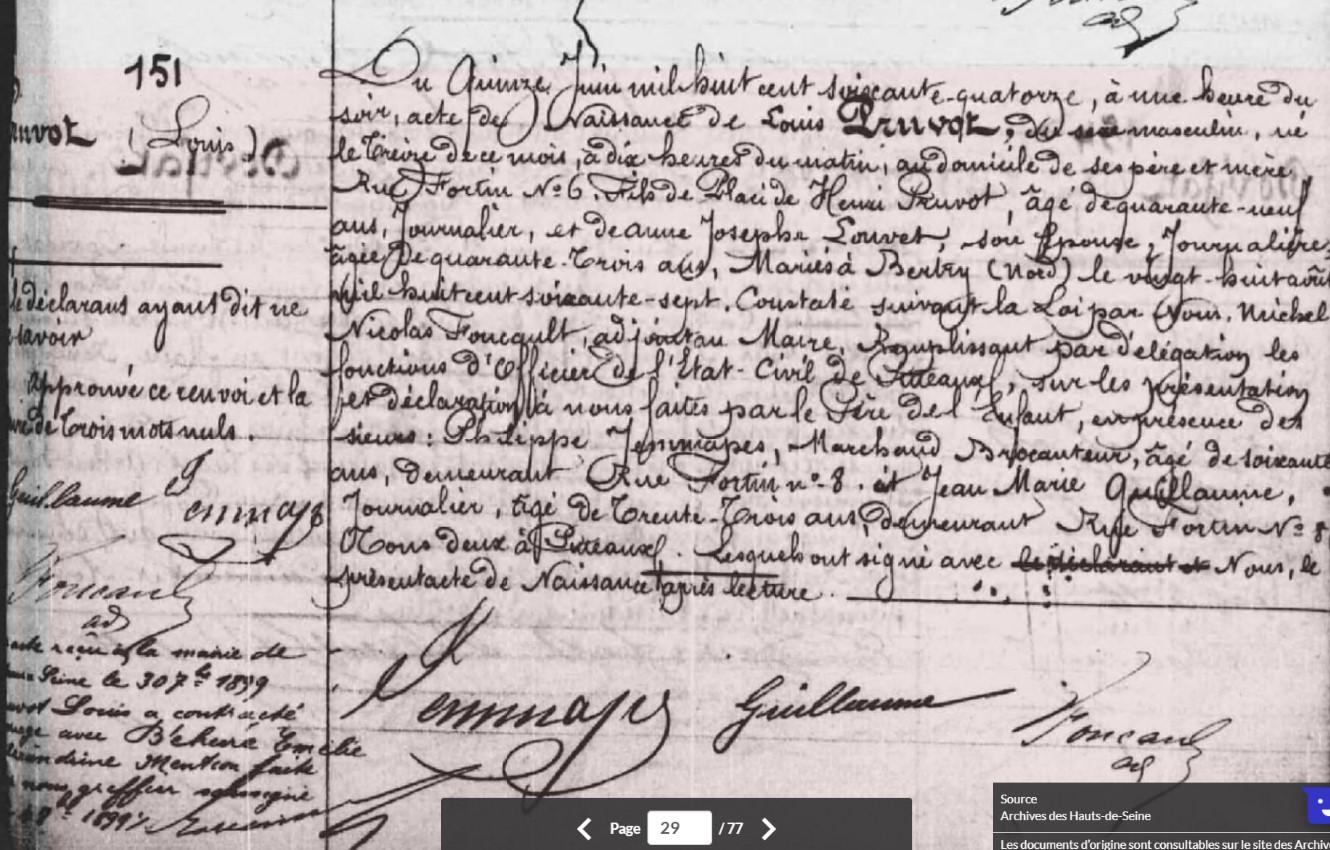 151
(Louis)
Du Quinze Juin mil huit cent soixante-quatorze, à une heure du
soir, acte de Naissance de Louis Pruvot, du sexe masculin, né
le Treize de ce mois, à dix heures du matin, au domicile de ses père et mère
Rue Fortin No 6. Fils de Placide Henri Pruvot, âgé de quarante-neuf
ans, Journalier, et de anne Josephe Louvet, son Epouse, Journalière
âgée de quarante-Trois ans, Mariés à Bertry (Nord) le vingt-huit août
Mil huit cent soixante-sept. Constaté suivant la Loi par Nous, Michel
Nicolas Foucault, adjoint au Maire, Remplissant par délégation les
fonctions d'Officier de l'Etat-Civil de Puteaux, sur les présentation
et déclaration à nous faites par le Père de l'Enfant, en présence des
sieurs: Philippe Jemmapes, Marchand Brocanteur, âgé de soixante
ans, demeurant Rue Fortin no 8. et Jean Marie Guillaume,
Journalier, âgé de Trente-Trois ans, demeurant Rue Fortin No 8
Tous deux à Puteaux. Lesquels ont signé avec le déclarant et Nous, le
présent acte de Naissance après lecture.
déclarant ayant dit ne
savoir
approuvé ce renvoi et la
de trois mots nuls.
Guillaume Jemmapes
Foucault
ad
reçu à la mairie de
Seine le 30 7bre 1899
Louis a contracté
avec Béhura Emélie
Mention faite
nous greffier soussigné
1899
Jemmapes Guillaume Foucault
ad
Page 29 / 77
Source
Archives des Hauts-de-Seine
Les documents d'origine sont consultables sur le site des Archiv